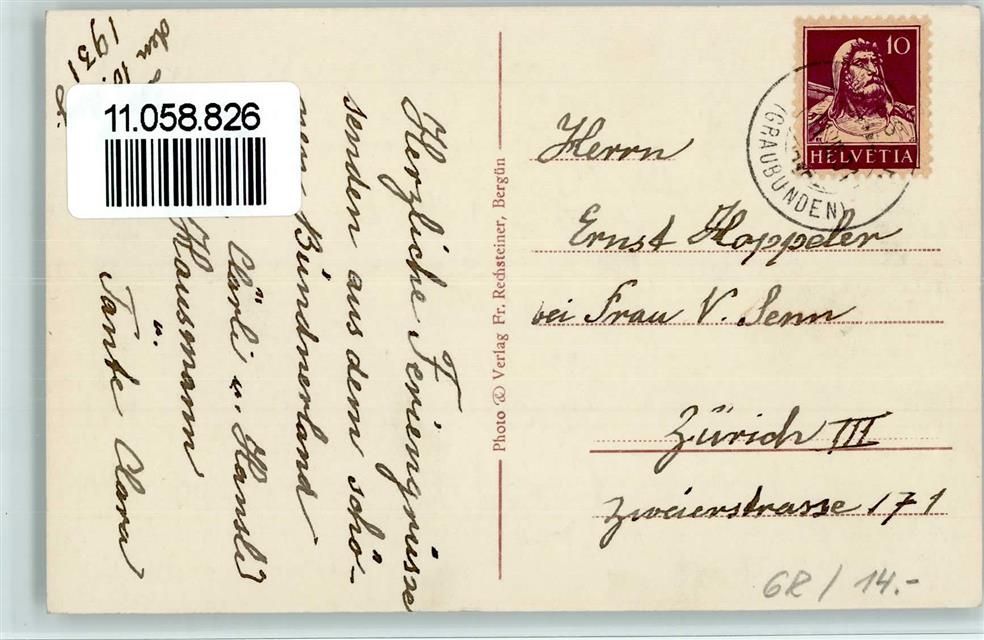 1931
11.058.826
Herzliche Feriengrüsse
senden aus dem schö-
nen Bündnerland
Clärli u. Hansli
Hausmann
u.
Tante Clara
Photo & Verlag Fr. Rechsteiner, Bergün
10
HELVETIA
(GRAUBÜNDEN)
Herrn
Ernst Hoppeler
bei Frau V. Senn
Zürich III
Zweierstrasse 171
GR / 14.-